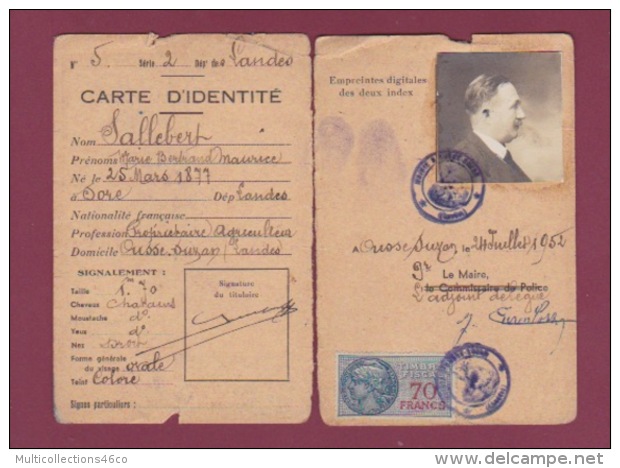 N° 5 Série 2 Dép. des Landes
CARTE D'IDENTITÉ
Nom Sallebert
Prénoms Marie Bertrand Maurice
Né le 25 Mars 1877
à Sore Dép Landes
Nationalité française
Profession Propriétaire Agriculteur
Domicile Ousse-Suzan (Landes
SIGNALEMENT :
Taille 1m70
Cheveux Chatains
Moustache d°
Yeux d°
Nez droit
Forme générale
du visage ovale
Teint Coloré
Signes particuliers :
Signature
du titulaire
Empreintes digitales
des deux index
A Ousse Suzan, le 24 Juillet 1952
Le Maire,
le Commissaire de Police
L'adjoint délégué
TIMBRE
FISCAL
70
FRANCS
Multicollections46co
delcampe.net